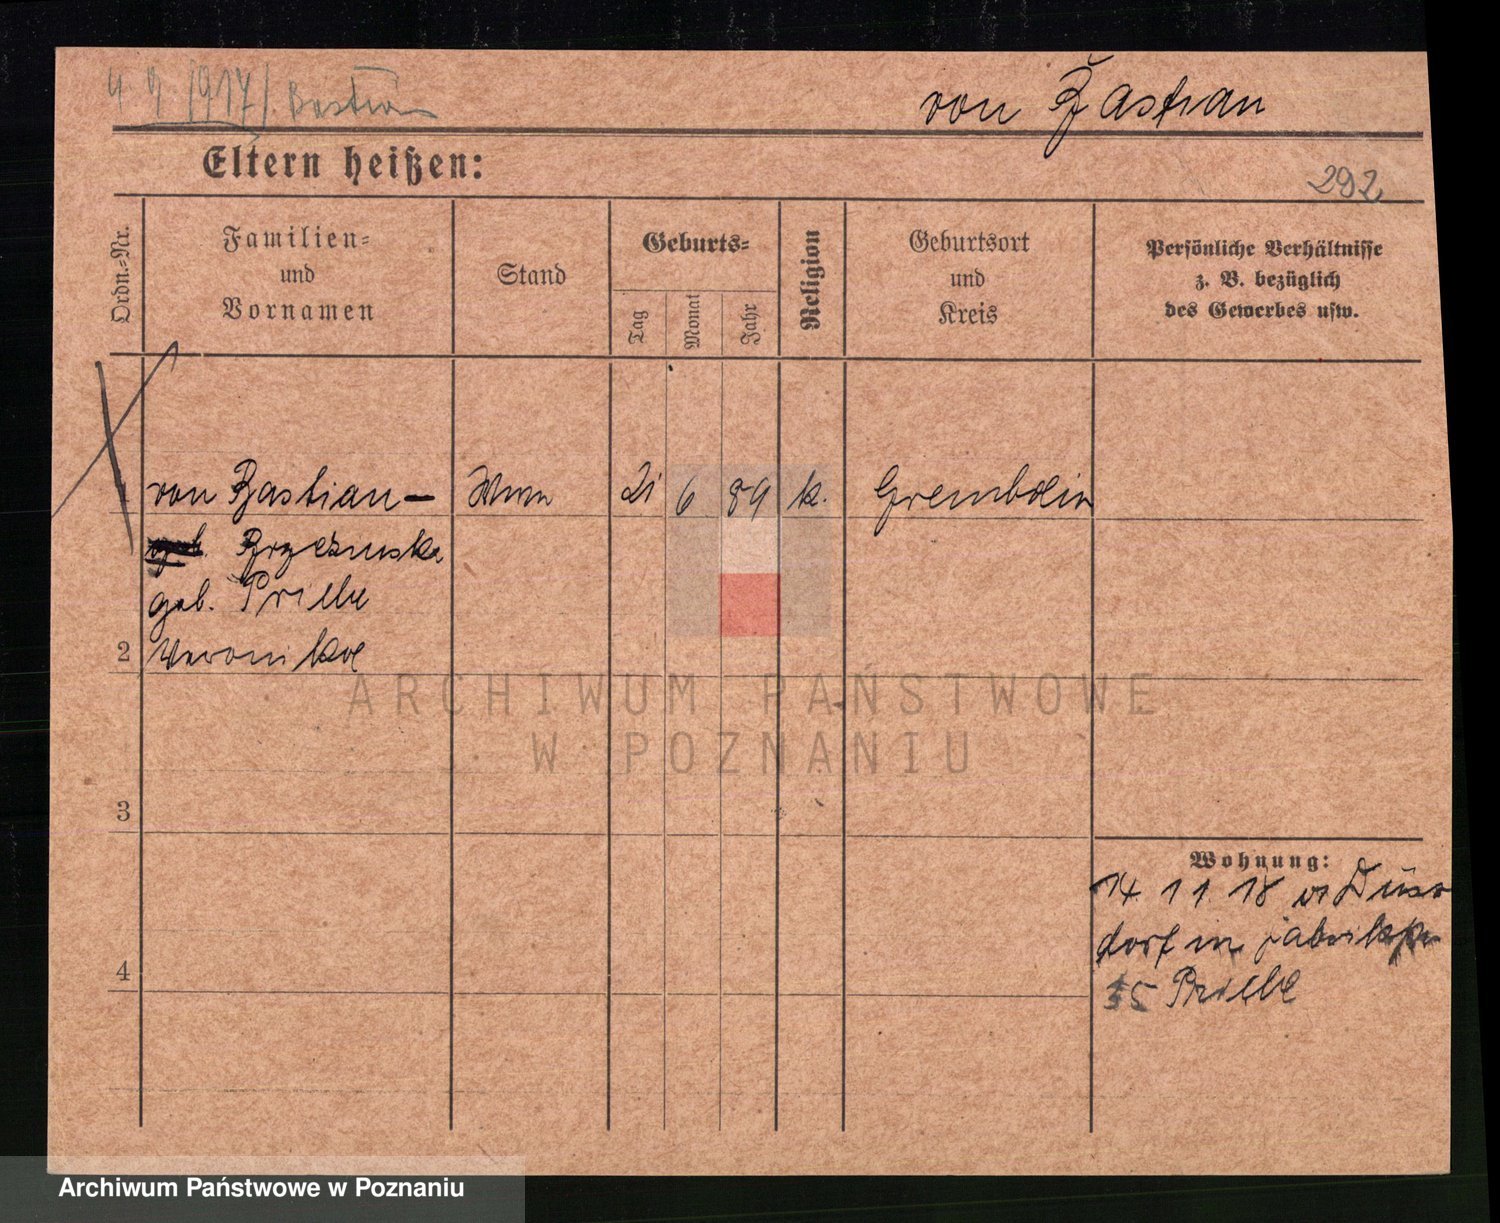 4. 9. 1917/. Bastian
von Bastian
Eltern heißen:
292
Ordn.-Nr.
Familien-
und
Vornamen
Stand
Geburts-
Tag
Monat
Jahr
Religion
Geburtsort
und
Kreis
Persönliche Verhältnisse
z. B. bezüglich
des Gewerbes usw.
1 von Bastian- Wwe 21 6 89 k.
geb. Brzezinska
geb. Prillu
2 Veronika
ARCHIWUM PAŃSTWOWE
W POZNANIU
3
Wohnung:
14. 11. 18 Düssel
dorf in
4
35
Archiwum Państwowe w Poznaniu